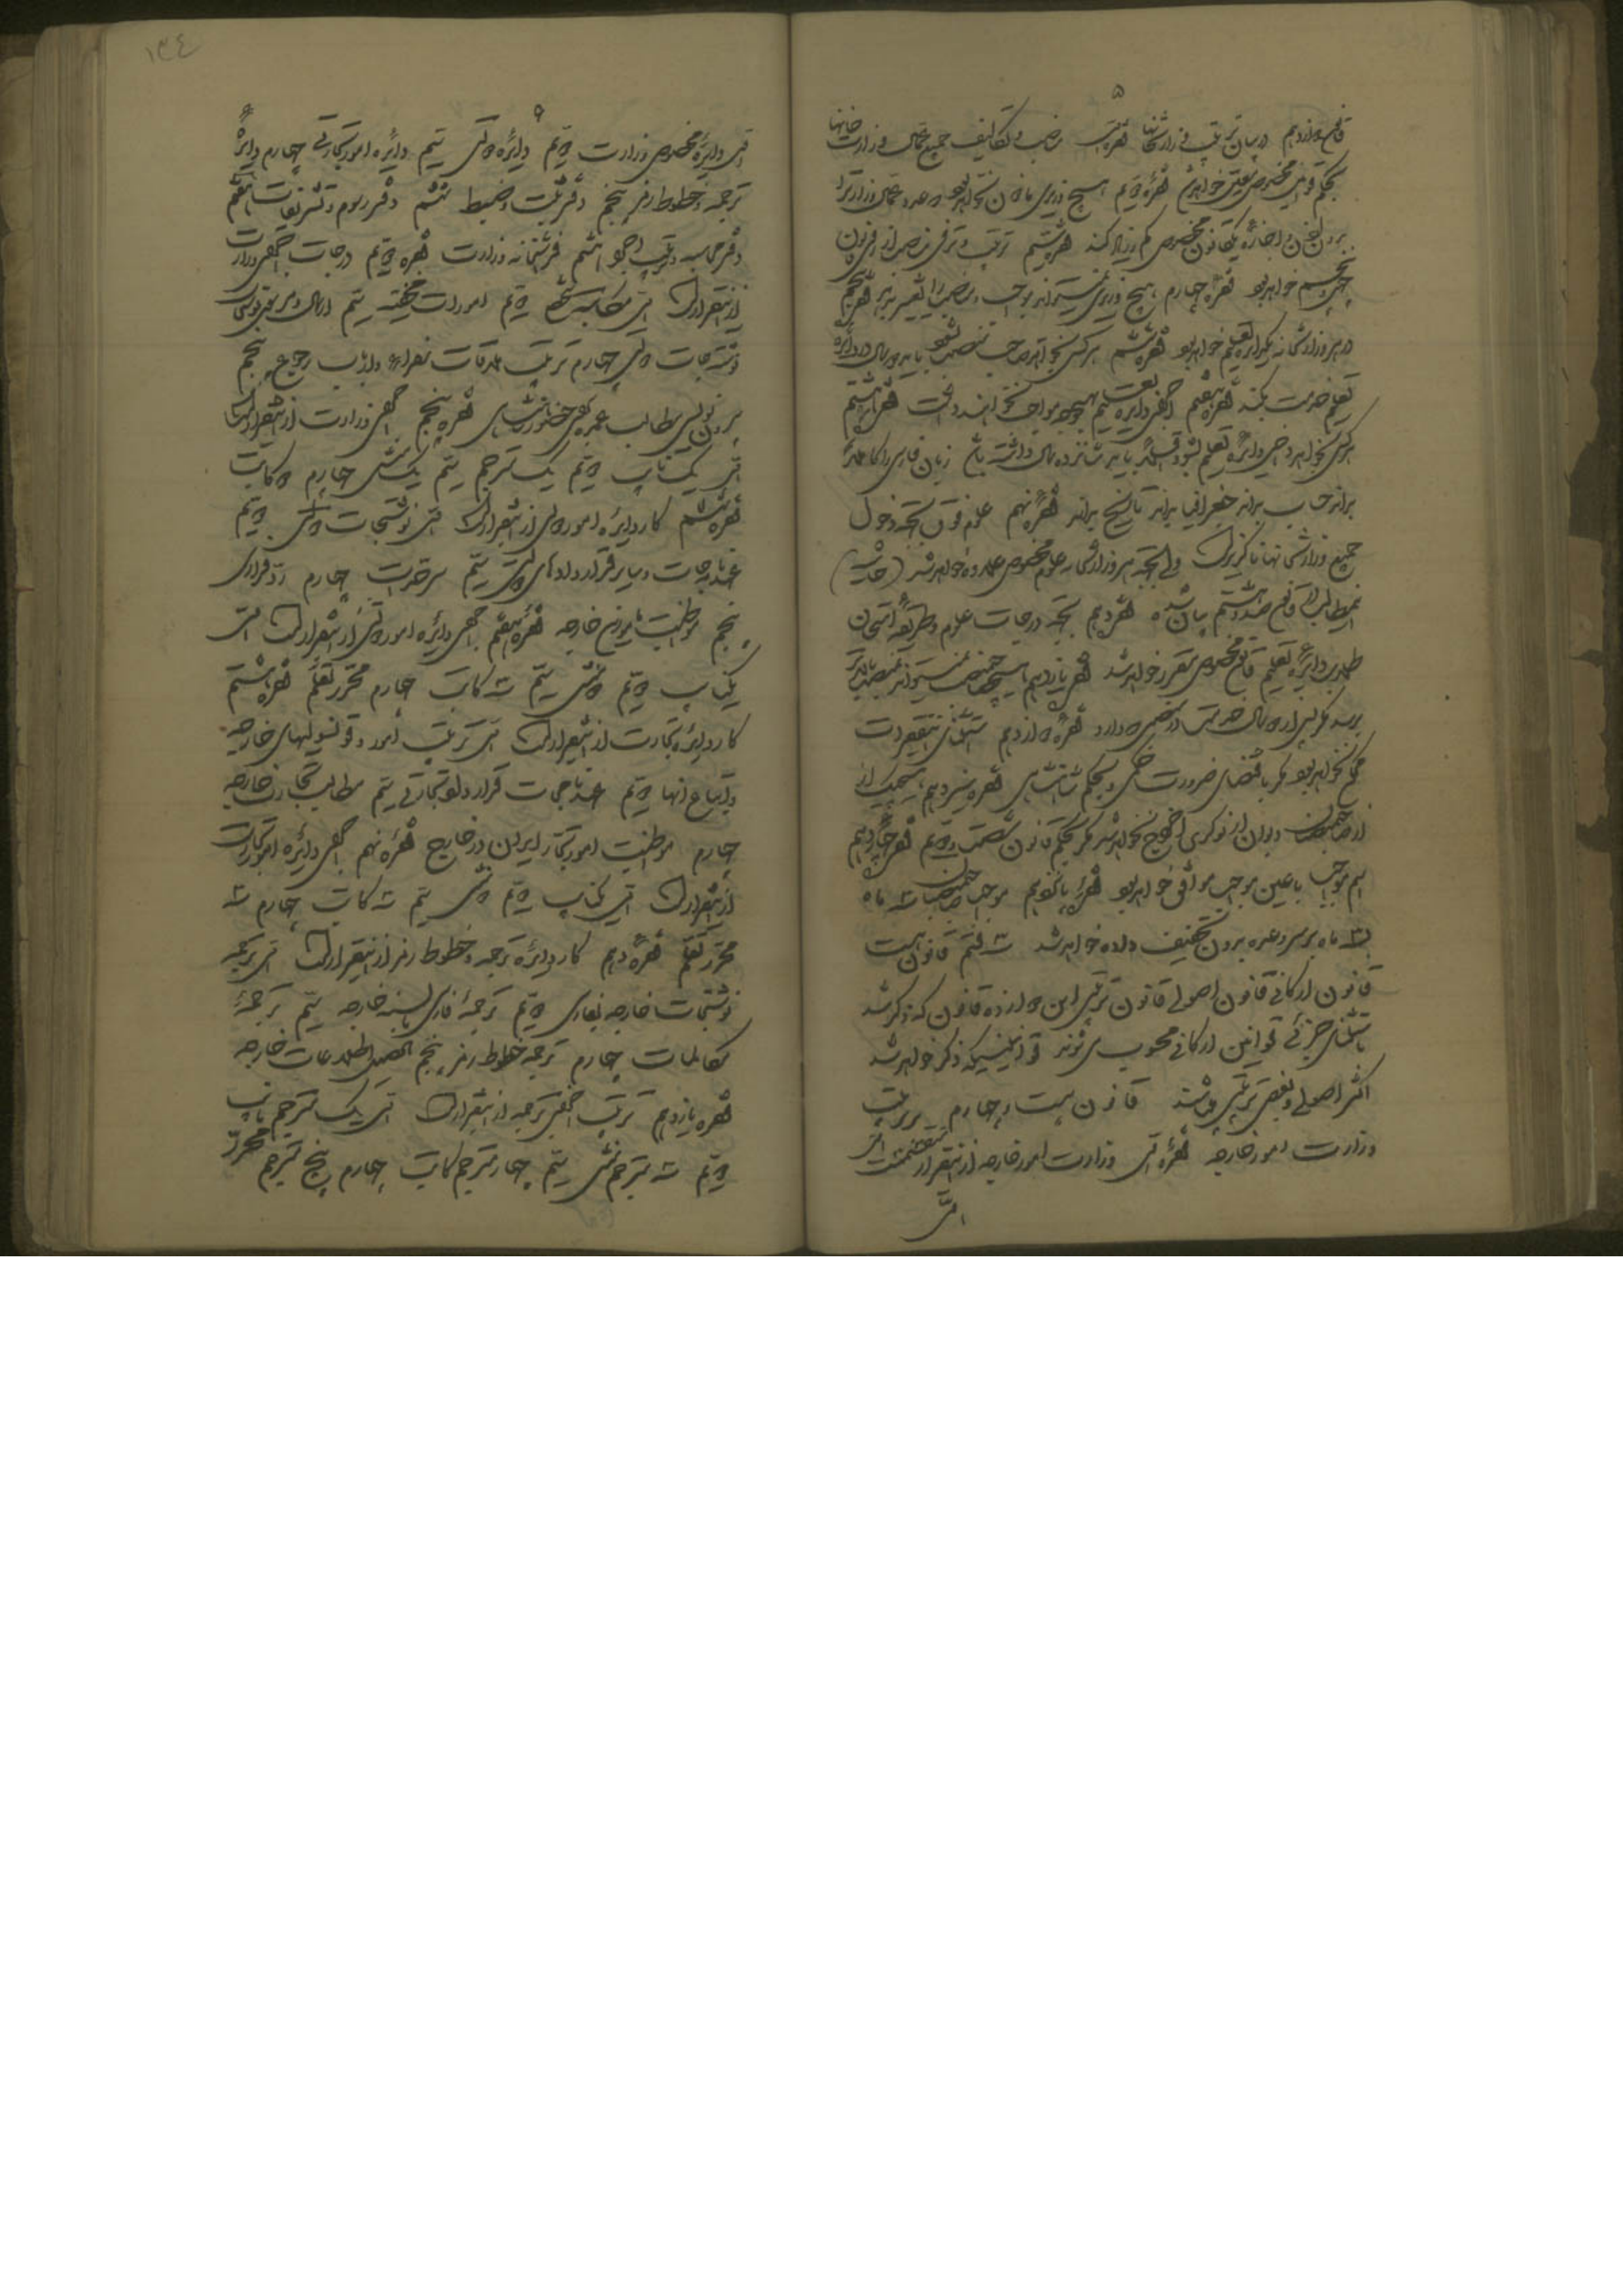 ۵
قانون دوازدهم در بیان ترتیب وزارتخانها فقره اول مناصب و تکالیف جمیع عمال وزارت خانها
بحکم قوانین مخصوص معین خواهد شد فقره دویم هیچ وزیری ماذون نخواهد بود عدد عمال وزارت را
بدون اذن و اجازه یک قانون مخصوص کم و زیاد کند فقره سیم ترتیب و ترقی مناصب از قرار قانون
پنجم خواهد بود فقره چهارم هیچ وزیری نمیتواند مواجب مناصب را تغییر بدهد فقره پنجم
در هر وزارتخانه یک دایره تعلیم خواهد بود فقره ششم هر کس بخواهد صاحب منصب شود باید دو سال در دایره
تعلیم خدمت بکند فقره هفتم اجزای دایره تعلیم بهیچوجه مواجب نخواهند داشت فقره هشتم
هر کس بخواهد داخل دایره تعلیم بشود باید شانزده سال داشته باشد زبان فارسی را کاملا
بداند حساب بداند جغرافیا بداند تاریخ بداند فقره نهم علوم فوق بجهة دخول
جمیع وزارتخانها ناگزیر است ولی بجهة هر وزارتخانه علوم مخصوص علاوه خواهد شد (حاشیه
این مطالب در قانون هشتم بیان شده فقره دهم بجهة درجات علوم و طریقه امتحان
طلاب دایره تعلیم قانون مخصوص مقرر خواهد شد فقره یازدهم هیچ صاحب منصب نمیتواند بمنصب بالاتر
برسد مگر پس از دو سال خدمت در منصبی که دارد فقره دوازدهم استثنای این فقرات
ممکن نخواهد بود مگر باقتضای ضرورت و بحکم شاهنشاهی فقره سیزدهم هیچیک از
صاحبمنصبان دیوان از نوکری اخراج نخواهد شد مگر بحکم قانون فقره چهاردهم
اسم مواجب با عین مواجب موافق خواهد بود فقره پانزدهم مواجب صاحبمنصبان سه ماه
به سه ماه بر سر وعده بدون تخفیف داده خواهد شد قانون بیست
قانون ارکانی قانون اصولی قانون ترتیبی این دوازده قانون که ذکر شد
باستثنای جزئی قوانین ارکانی محسوب می شوند قوانینیکه ذکر خواهد شد
اکثر اصولی و بعضی ترتیبی میباشند قانون بیست و چهارم بر ترتیب
وزارت امور خارجه فقره اول وزارت امور خارجه از اینقرار منقسم است
اول
۶
۱۳۴
اول دایره مخصوص وزارت دویم دایره دولتی سیم دایره امور تجارتی چهارم دایره
ترجمه و خطوط رمز پنجم دفتر ثبت و ضبط ششم دفتر رسوم و تشریفات هفتم
دفتر محاسبه هشتم فراشخانه وزارت فقره دویم درجات اجزای وزارت
از اینقرار است اول مکاتبه شخصی دویم امورات مخفیه سیم ارسال و مرسول
نوشتجات دولتی چهارم ترتیب ملاقات سفرا و ارباب رجوع پنجم
بیرون نویسی مطالب عمده بجهة حضور شاهنشاهی فقره پنجم اجزای وزارت از اینقرار است
اول یک نایب دویم یک مترجم سیم یک منشی چهارم دو کاتب
فقره ششم کار دایره امور دولتی از اینقرار است اول نوشتجات دولتی دویم
عهدنامجات و سایر قراردادهای دولتی سیم سرحدات چهارم رد فراری
پنجم مواظبت مامورین خارجه فقره هفتم اجزای دایره امور دولتی از اینقرار است اول
یک نایب دویم دو منشی سیم سه کاتب چهارم محرر تعلیم فقره هشتم
کار دایره تجارت از اینقرار است اول ترتیب امور قونسولهای خارجه
و اتباع آنها دویم عهدنامجات و قراردادهای تجارتی سیم مطالب تجار خارجه
چهارم مواظبت امور تجار ایران در خارج فقره نهم اجزای دایره امور تجارت
از اینقرار است اول یک نایب دویم دو منشی سیم سه کاتب چهارم سه
محرر تعلیم فقره دهم کار دایره ترجمه و خطوط رمز از اینقرار است اول ترجمه
نوشتجات خارجه بفارسی دویم ترجمه فارسی بالسنه خارجه سیم ترجمه
مکالمات چهارم ترجمه خطوط رمز پنجم تحصیل اطلاعات خارجه
فقره یازدهم ترتیب اجزای ترجمه از اینقرار است اول یک مترجم نایب
دویم سه مترجم منشی سیم چهار مترجم کاتب چهارم پنج مترجم محرر